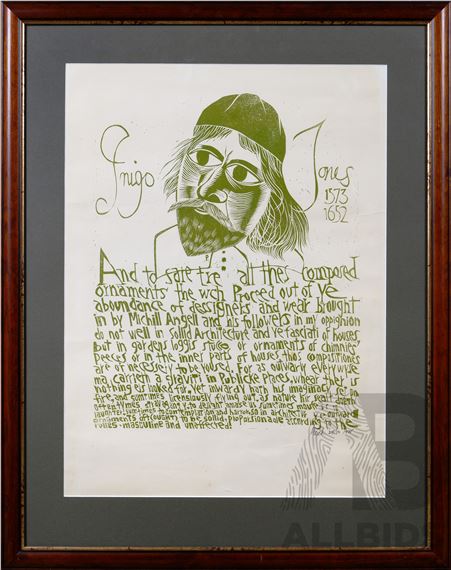 Inigo Jones
1573
1652
And to saie tre all thes composed
ornaments the wch Proceed out of ye
aboundance of dessigners and wear brought
in by Michill Angell and his followers in my oppignion
do not well in sollid Architecture and ye fasciati of houses,
but in gardens loggis stucco or ornaments of chimnie
peeces or in the inner parts of houses thos compositiones
are of necessety to be yoused. For as outwarly every wyse
ma carrieth a graviti in Publicke Places, whear ther is
nothing els looked for, yet inwardly hath his imaginacy set on
fire, and sumtimes licenciously flying out, as nature hir sealf doeth
often tymes stravagantly, to delight, amase us sumtimes moufe us to
laughter, sumtimes to contemplation and horror, so in architectu ye outward
ornaments oft to be sollid, proporsionable according to the
rulles, masculine and unaffected.
ALLBIDS